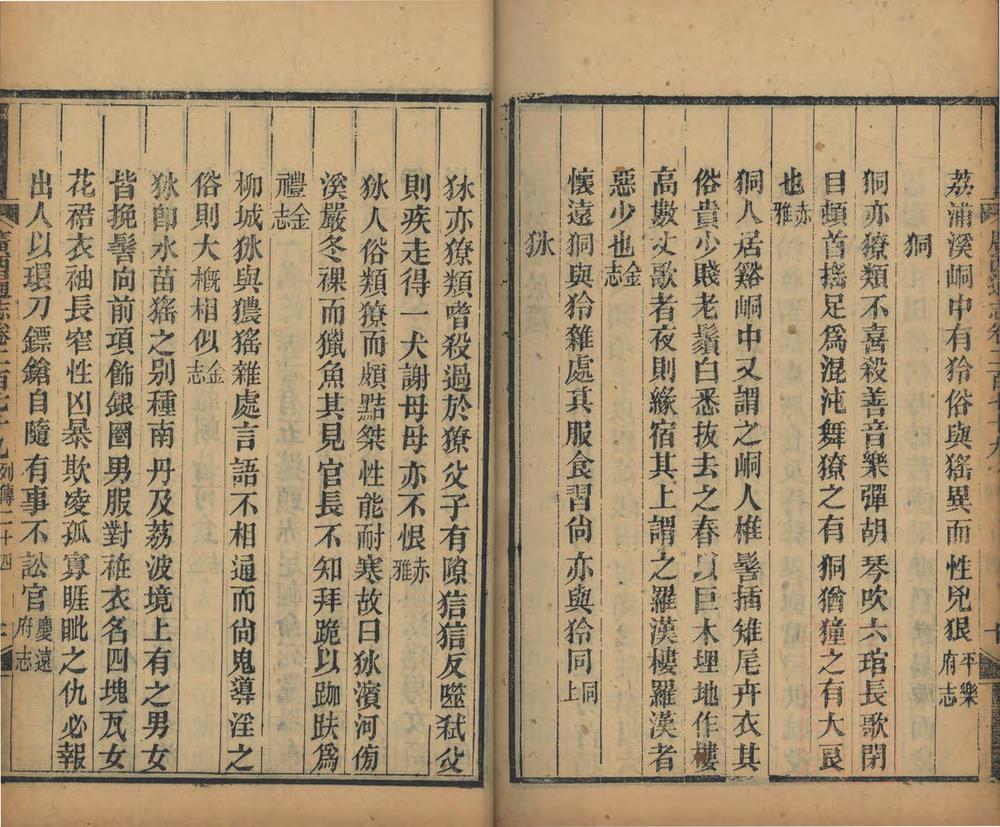 荔浦溪峒中有狑俗與猺異而性兇狠平樂府志
狪
狪亦獠類不喜殺善音樂彈胡琴吹六琯長歌閉
目頓首搖足爲混沌舞獠之有狪猶獞之有大良
也赤雅
狪人居谿峒中又謂之峒人椎髻插雉尾卉衣其
俗貴少賤老鬚白悉拔去之春以巨木埋地作樓
高數丈歌者夜則緣宿其上謂之羅漢樓羅漢者
惡少也金志
懷遠狪與狑雜處其服食習尚亦與狑同同上
㹫
㹫亦獠類嗜殺過於獠父子有隙狺狺反噬弒父
則疾走得一犬謝母母亦不恨赤雅
㹫人俗類獠而頗黠桀性能耐寒故曰㹫濱河傍
溪嚴冬裸而獵魚其見官長不知拜跪以跏趺爲
禮金志
柳城㹫與獞猺雜處言語不相通而尚鬼導淫之
俗則大概相似金志
㹫卽水苗猺之别種南丹及荔波境上有之男女
皆挽髻向前項飾銀圈男服對襟衣名四塊瓦女
花裙衣袖長窄性凶暴欺凌孤寡睚眦之仇必報
出人以環刀鏢鎗自隨有事不訟官慶遠府志
廣西通志卷二百七十九 列傳二十四